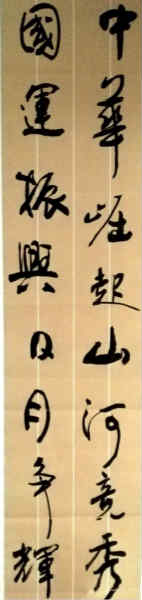 中華崛起山河竞秀
國運振興日月争輝